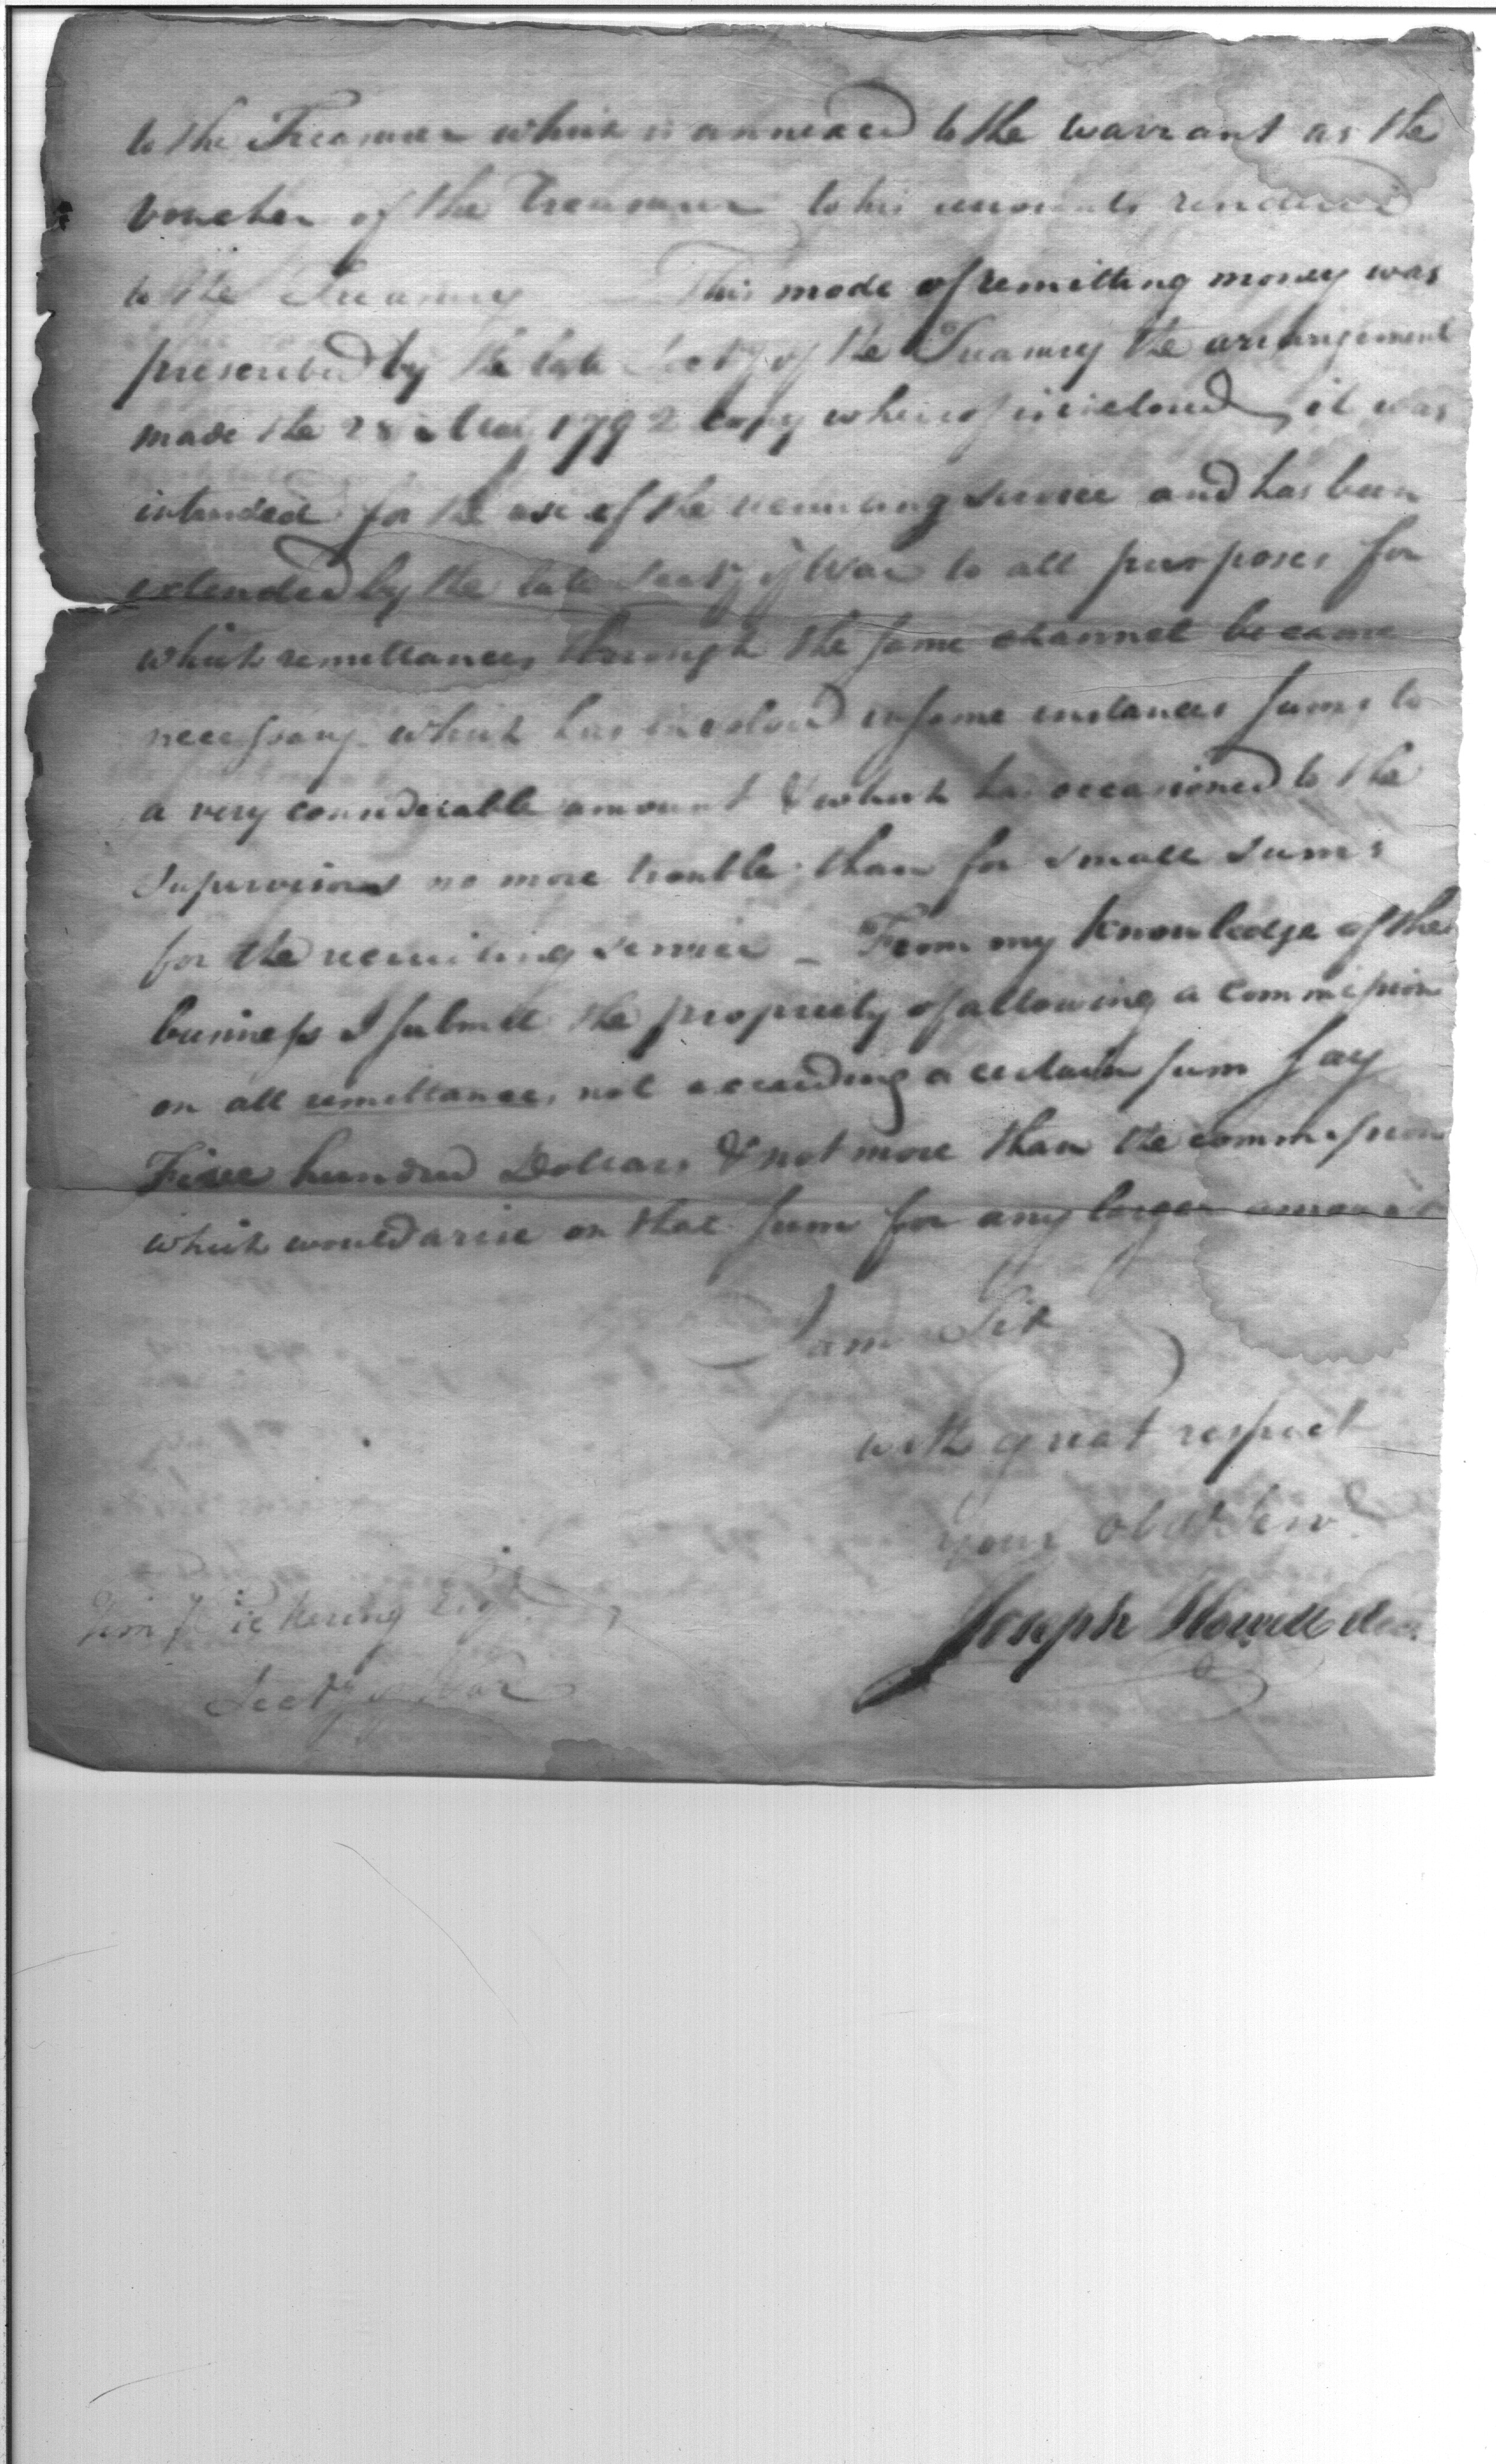 to the Treasurer which is annexed to the warrant as the
voucher of the Treasurer to his accounts rendered
to the Treasury This mode of remitting money was
prescribed by the late Secty of the Treasury the arrangement
made the 28 1792 copy whereof is inclosed, it was
intended for the use of the recruiting service and has been
extended by the late Secty of War to all purposes for
which remittances through the same channel became
necessary which has involved in some instances sums to
a very considerable amount & which has occasioned to the
Supervisors no more trouble than for small sums
for the recruiting service _ From my knowledge of the
business I submit the propriety of allowing a commission
on all remittances not exceeding a certain sum say
Five hundred Dollars & not more than the commission
which would arise on that sum for any larger amount
I am Sir
with great respect
your Obedt Servt
Joseph Howell
Timy Pickering Esqr
Secty of War